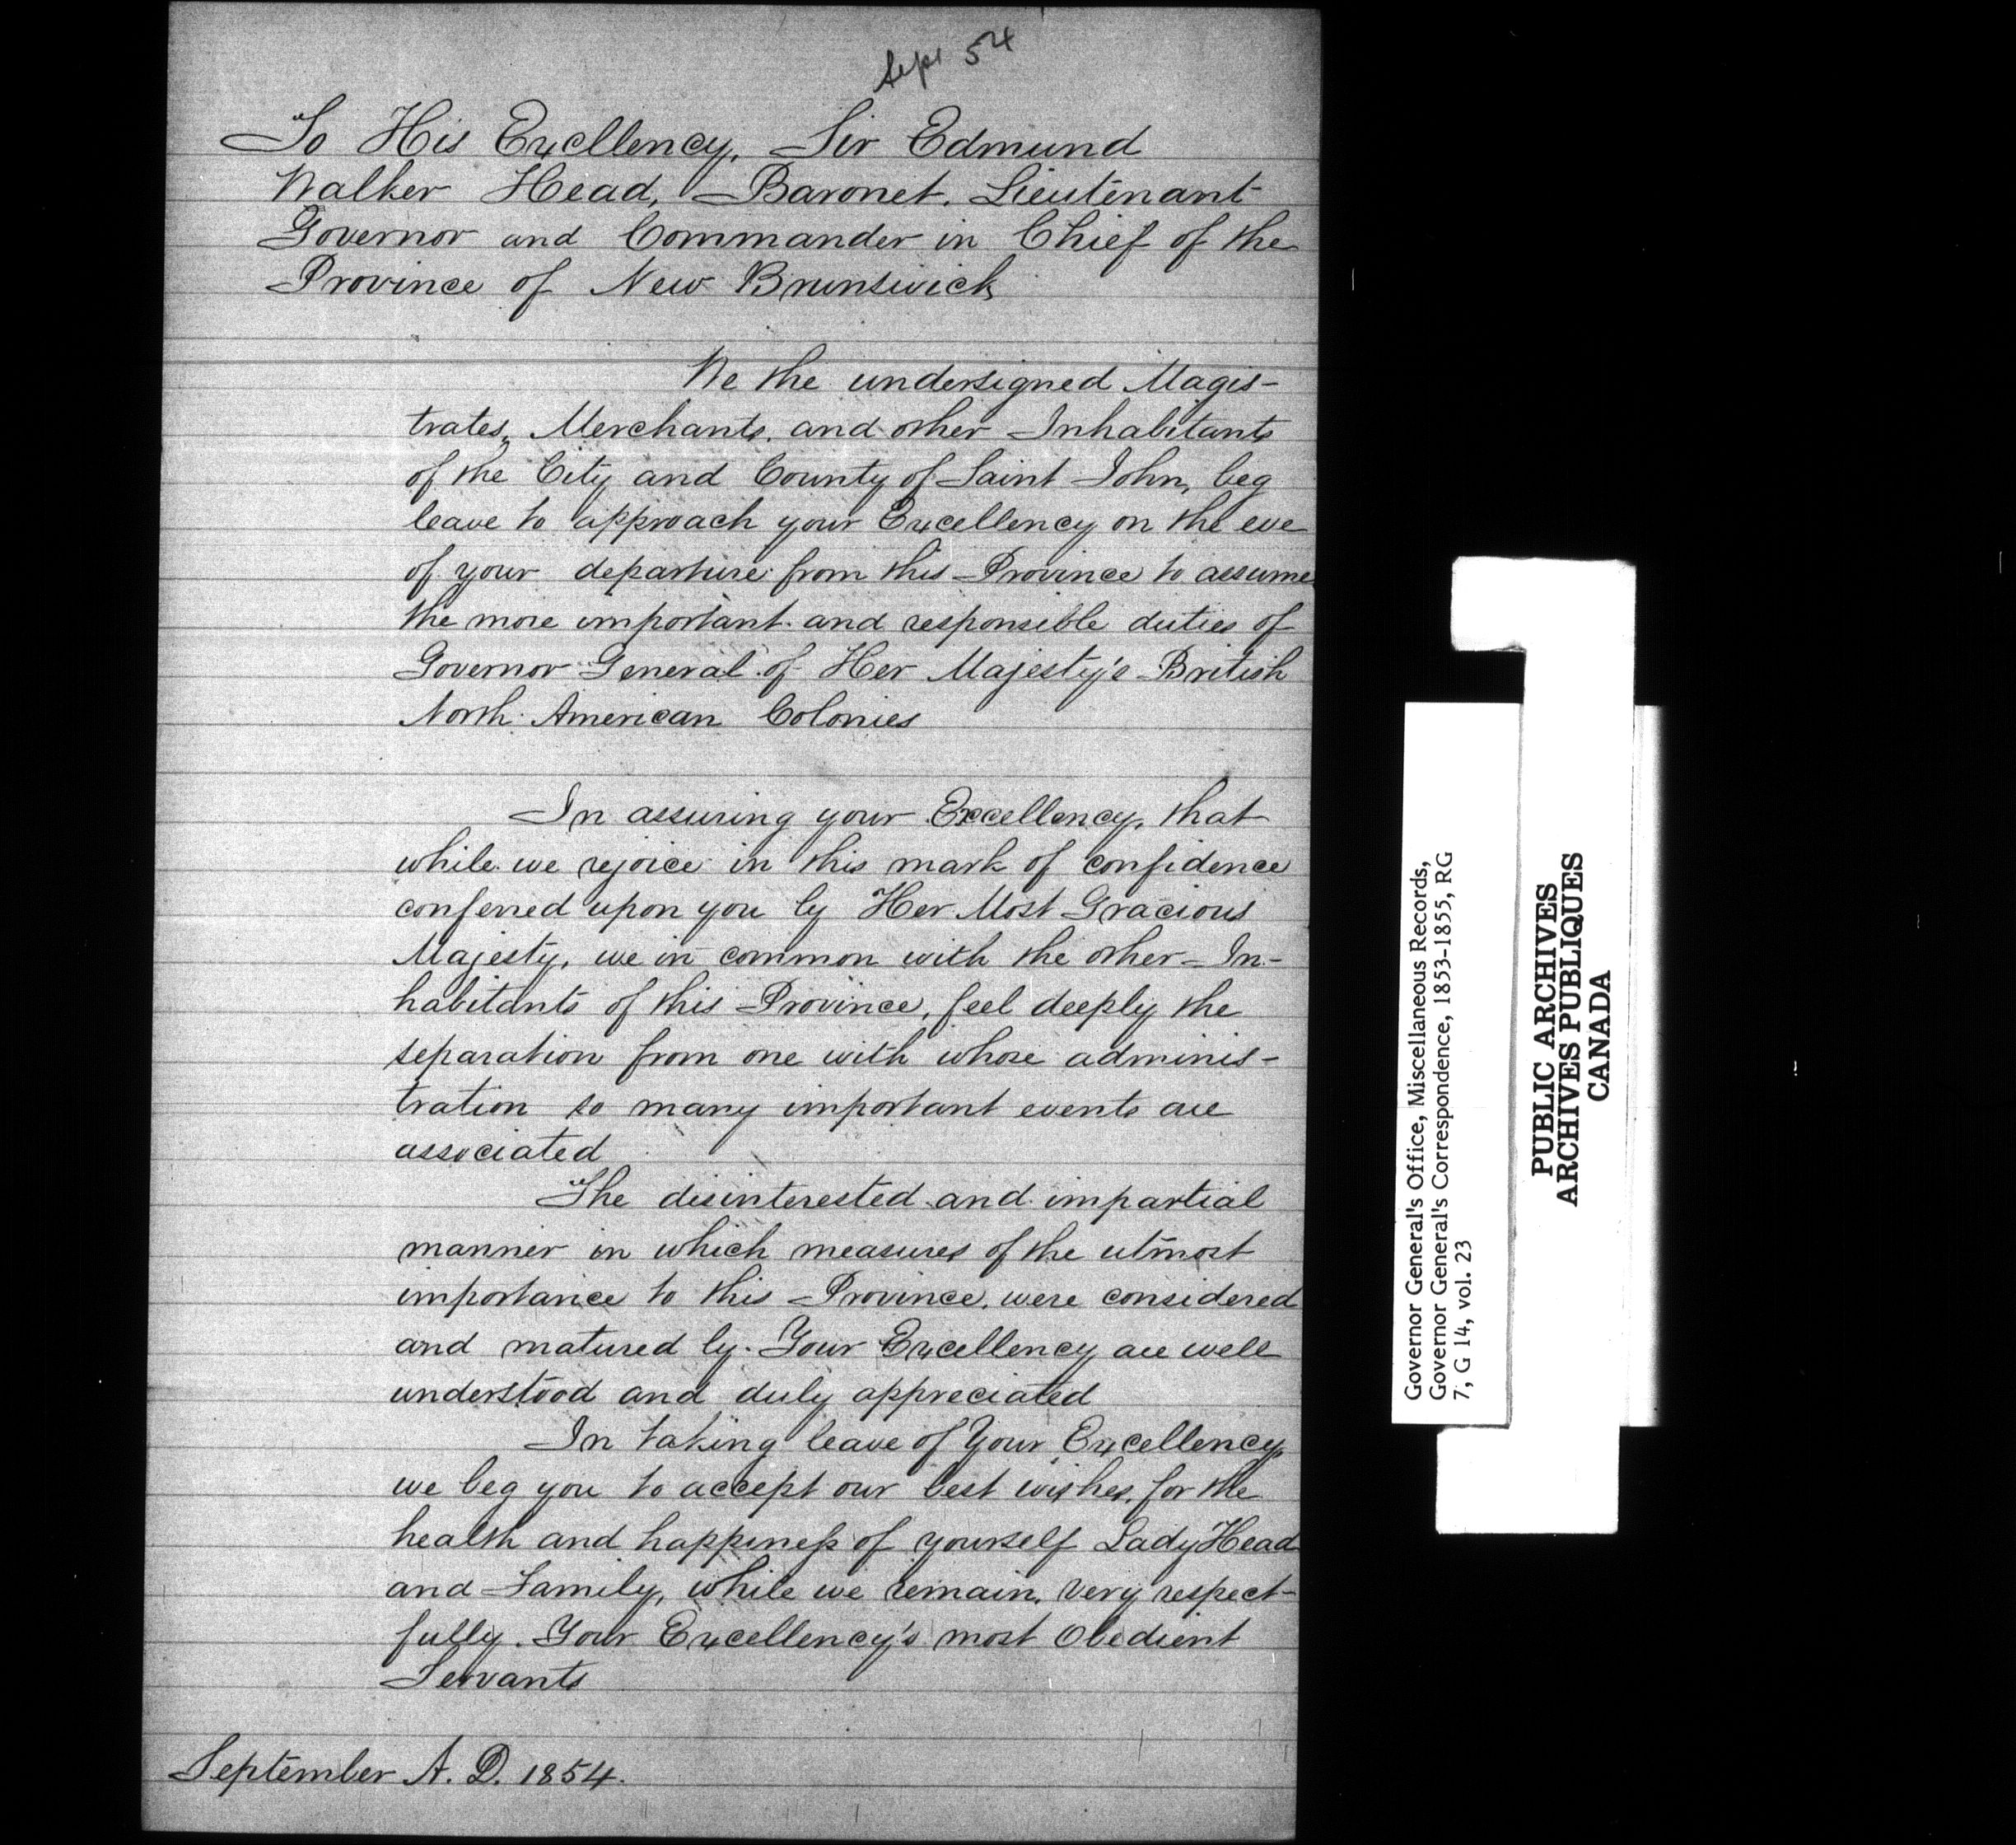 Sept 54
To His Excellency, Sir Edmund
Walker Head, Baronet. Lieutenant
Governor and Commander in Chief of the
Province of New Brunswick
We the undersigned Magis-
trates, Merchants. and other Inhabitants
of the City and County of Saint John, beg
leave to approach your Excellency on the eve
of your departure from this Province to assume
the more important and responsible duties of
Governor General of Her Majesty's British
North American Colonies
In assuring your Excellency, that
while we rejoice in this mark of confidence
conferred upon you by Her Most Gracious
Majesty, we in common with the other In-
habitants of this Province, feel deeply the
separation from one with whose adminis-
tration so many important events are
associated
The disinterested and impartial
manner in which measures of the utmost
importance to this Province, were considered
and matured by Your Excellency are well
understood and duly appreciated
In taking leave of Your Excellency
we beg you to accept our best wishes, for the
health and happiness of yourself Lady Head
and Family, while we remain, very respect-
fully. Your Excellency's most Obedient
Servants
September A. D. 1854.
Governor General's Office, Miscellaneous Records,
Governor General's Correspondence, 1853-1855, RG
7, G 14, vol. 23
PUBLIC ARCHIVES
ARCHIVES PUBLIQUES
CANADA